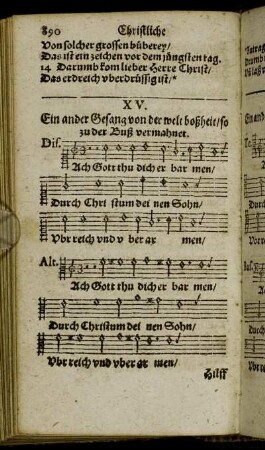 890 Christliche
Von solcher grossen büberey/
Das ist ein zeichen vor dem jüngsten tag.
14 Darumb kom lieber Herre Christ/
Das erdreich vberdrüssig ist/*
XV.
Ein ander Gesang von der welt boßheit/ so
zu der Buß vermahnet.
Dis.
Ach Gott thu dich er bar men/
Durch Chri stum dei nen Sohn/
Vbr reich vnd v ber ar men/
Alt.
Ach Gott thu dich er bar men/
Durch Christum dei nen Sohn/
Vbr reich vnd vber ar men/
Hilff